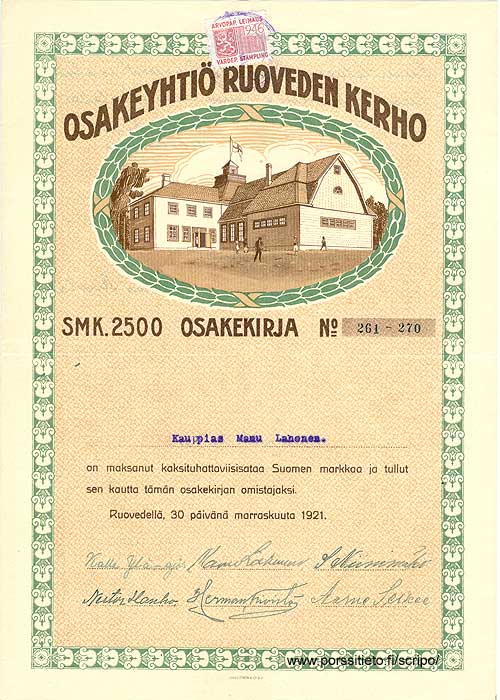 ARVOPAP. LEIMAUS
1946
VÄRDEP. STÄMPLING
OSAKEYHTIÖ RUOVEDEN KERHO
SMK. 2500 OSAKEKIRJA № 261 - 270
Kauppias Manu Lahonen.
on maksanut kaksituhattaviisisataa Suomen markkaa ja tullut
sen kautta tämän osakekirjan omistajaksi.
Ruovedellä, 30 päivänä marraskuuta 1921.
Kalle Ylä-
Herman
Aarne
www.porssitieto.fi/scripo/